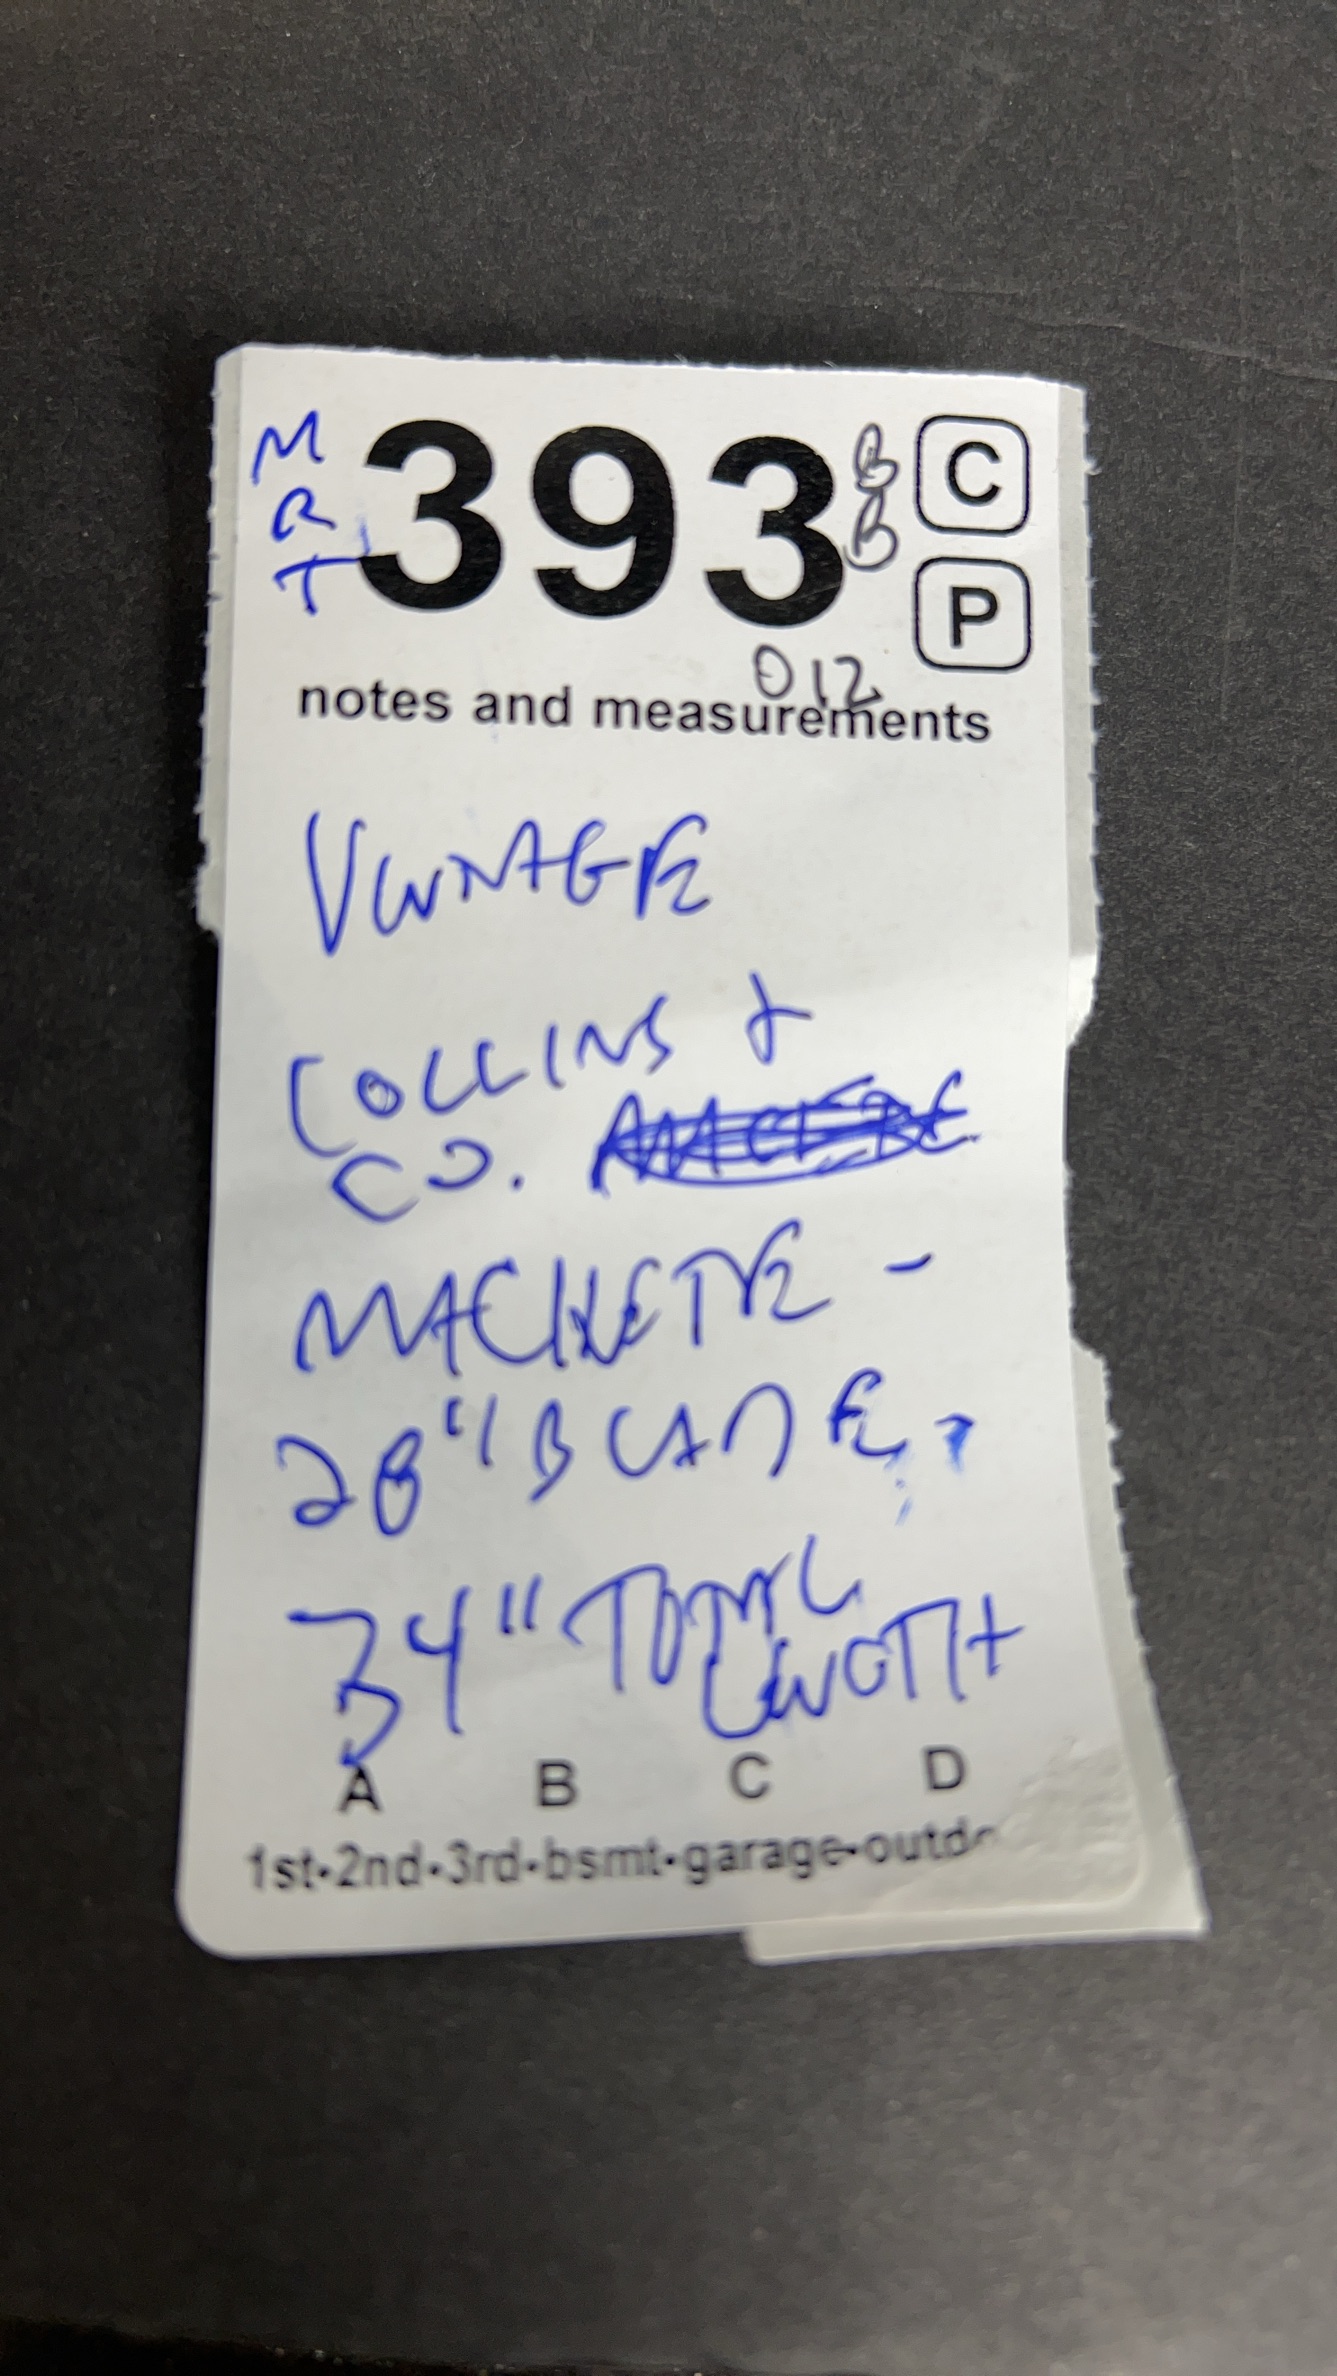 M
R
T
393
B
B
C
P
012
notes and measurements
VINTAGE
COLLINS &
CO.
MACHETE -
28" BLADE,
34" TOTAL
LENGTH
A B C D
1st•2nd•3rd•bsmt•garage•outdo